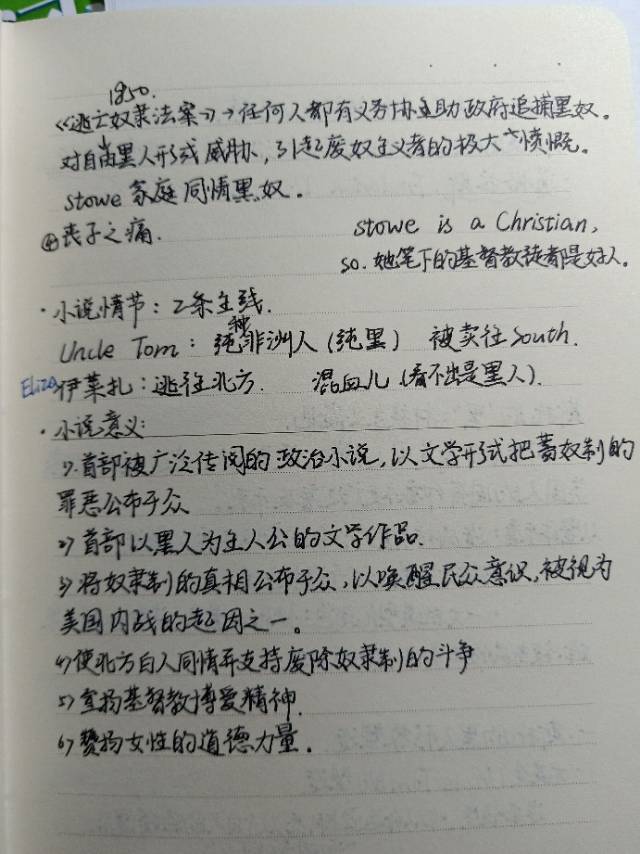 1850.
《逃亡奴隶法案》→任何人都有义务协助政府追捕黑奴。
对自由黑人形成威胁,引起废奴主义者的极大愤慨。
stowe 家庭同情黑奴。
④丧子之痛.
stowe is a Christian,
so. 她笔下的基督教徒都是好人。
· 小说情节:2条主线.
Uncle Tom: 纯种非洲人(纯黑) 被卖往South.
Eliza伊莱扎:逃往北方. 混血儿(看不出是黑人).
· 小说意义:
1) 首部被广泛传阅的政治小说,以文学形式把蓄奴制的
罪恶公布于众
2) 首部以黑人为主人公的文学作品.
3) 将奴隶制的真相公布于众,以唤醒民众意识,被视为
美国内战的起因之一。
4) 使北方白人同情并支持废除奴隶制的斗争
5) 宣扬基督教博爱精神.
6) 赞扬女性的道德力量.